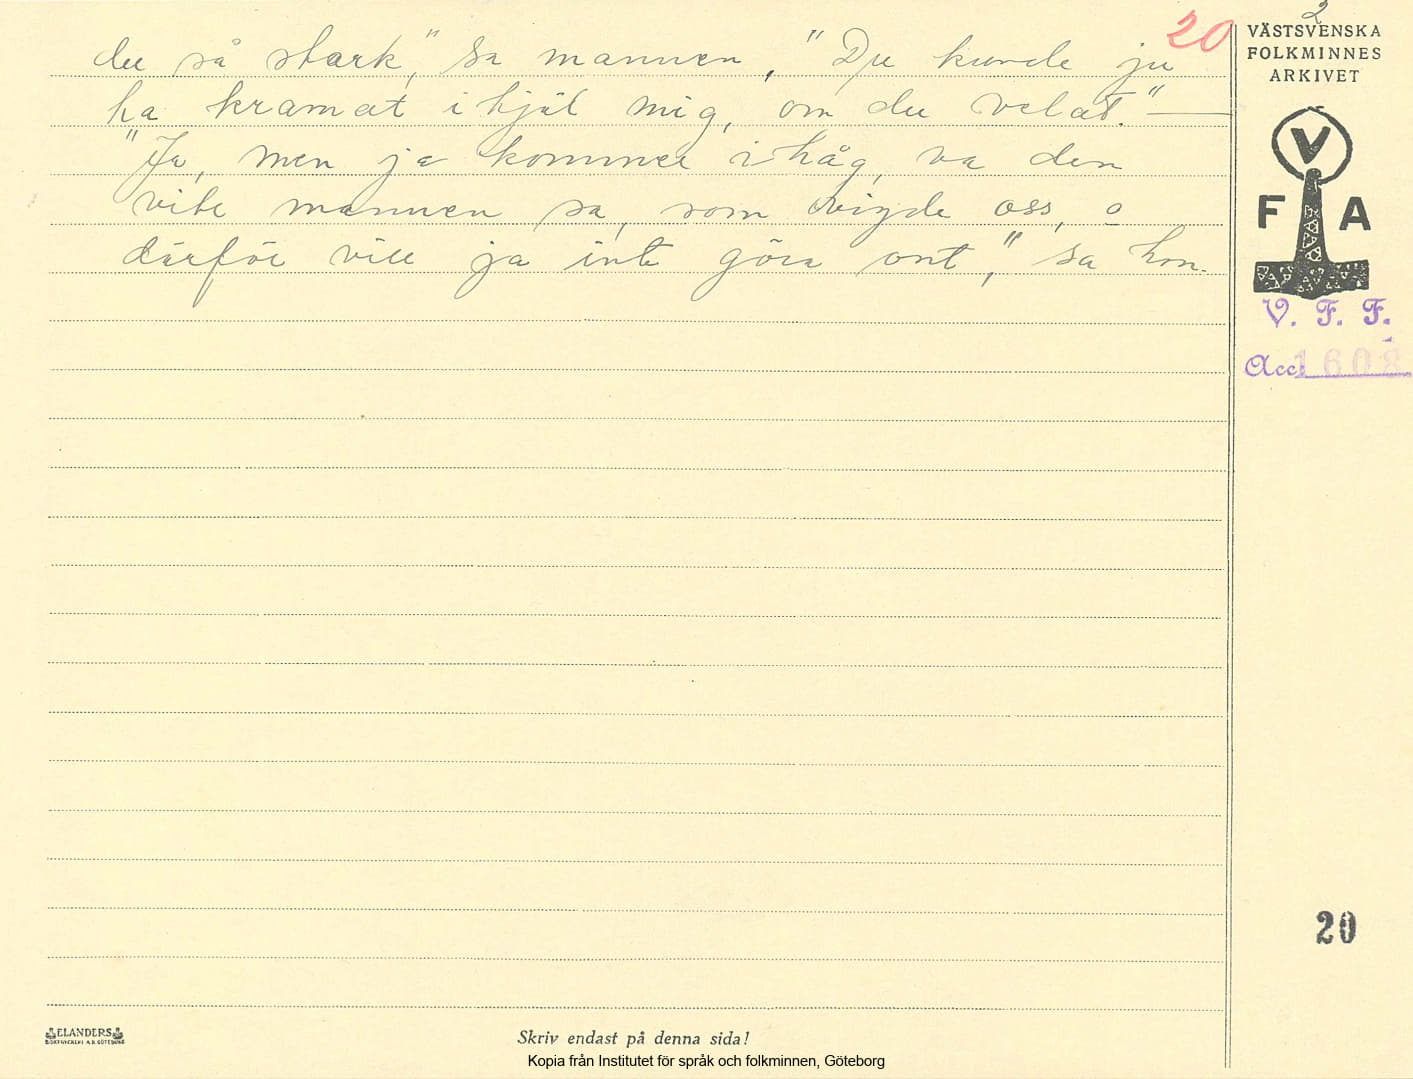 2
20
du så stark," sa mannen, "Du kunde ju
ha kramat ihjäl mig, om du velat." —
"Ja, men ja kommer ihåg, va den
vite mannen sa, som vigde oss, o
därför vill ja inte göra ont," sa hon.
VÄSTSVENSKA
FOLKMINNES
ARKIVET
V
F A
V. F. F.
Acc. 1608
20
ELANDERS
BOKTRYCKERI A.B. GÖTEBORG
Skriv endast på denna sida!
Kopia från Institutet för språk och folkminnen, Göteborg